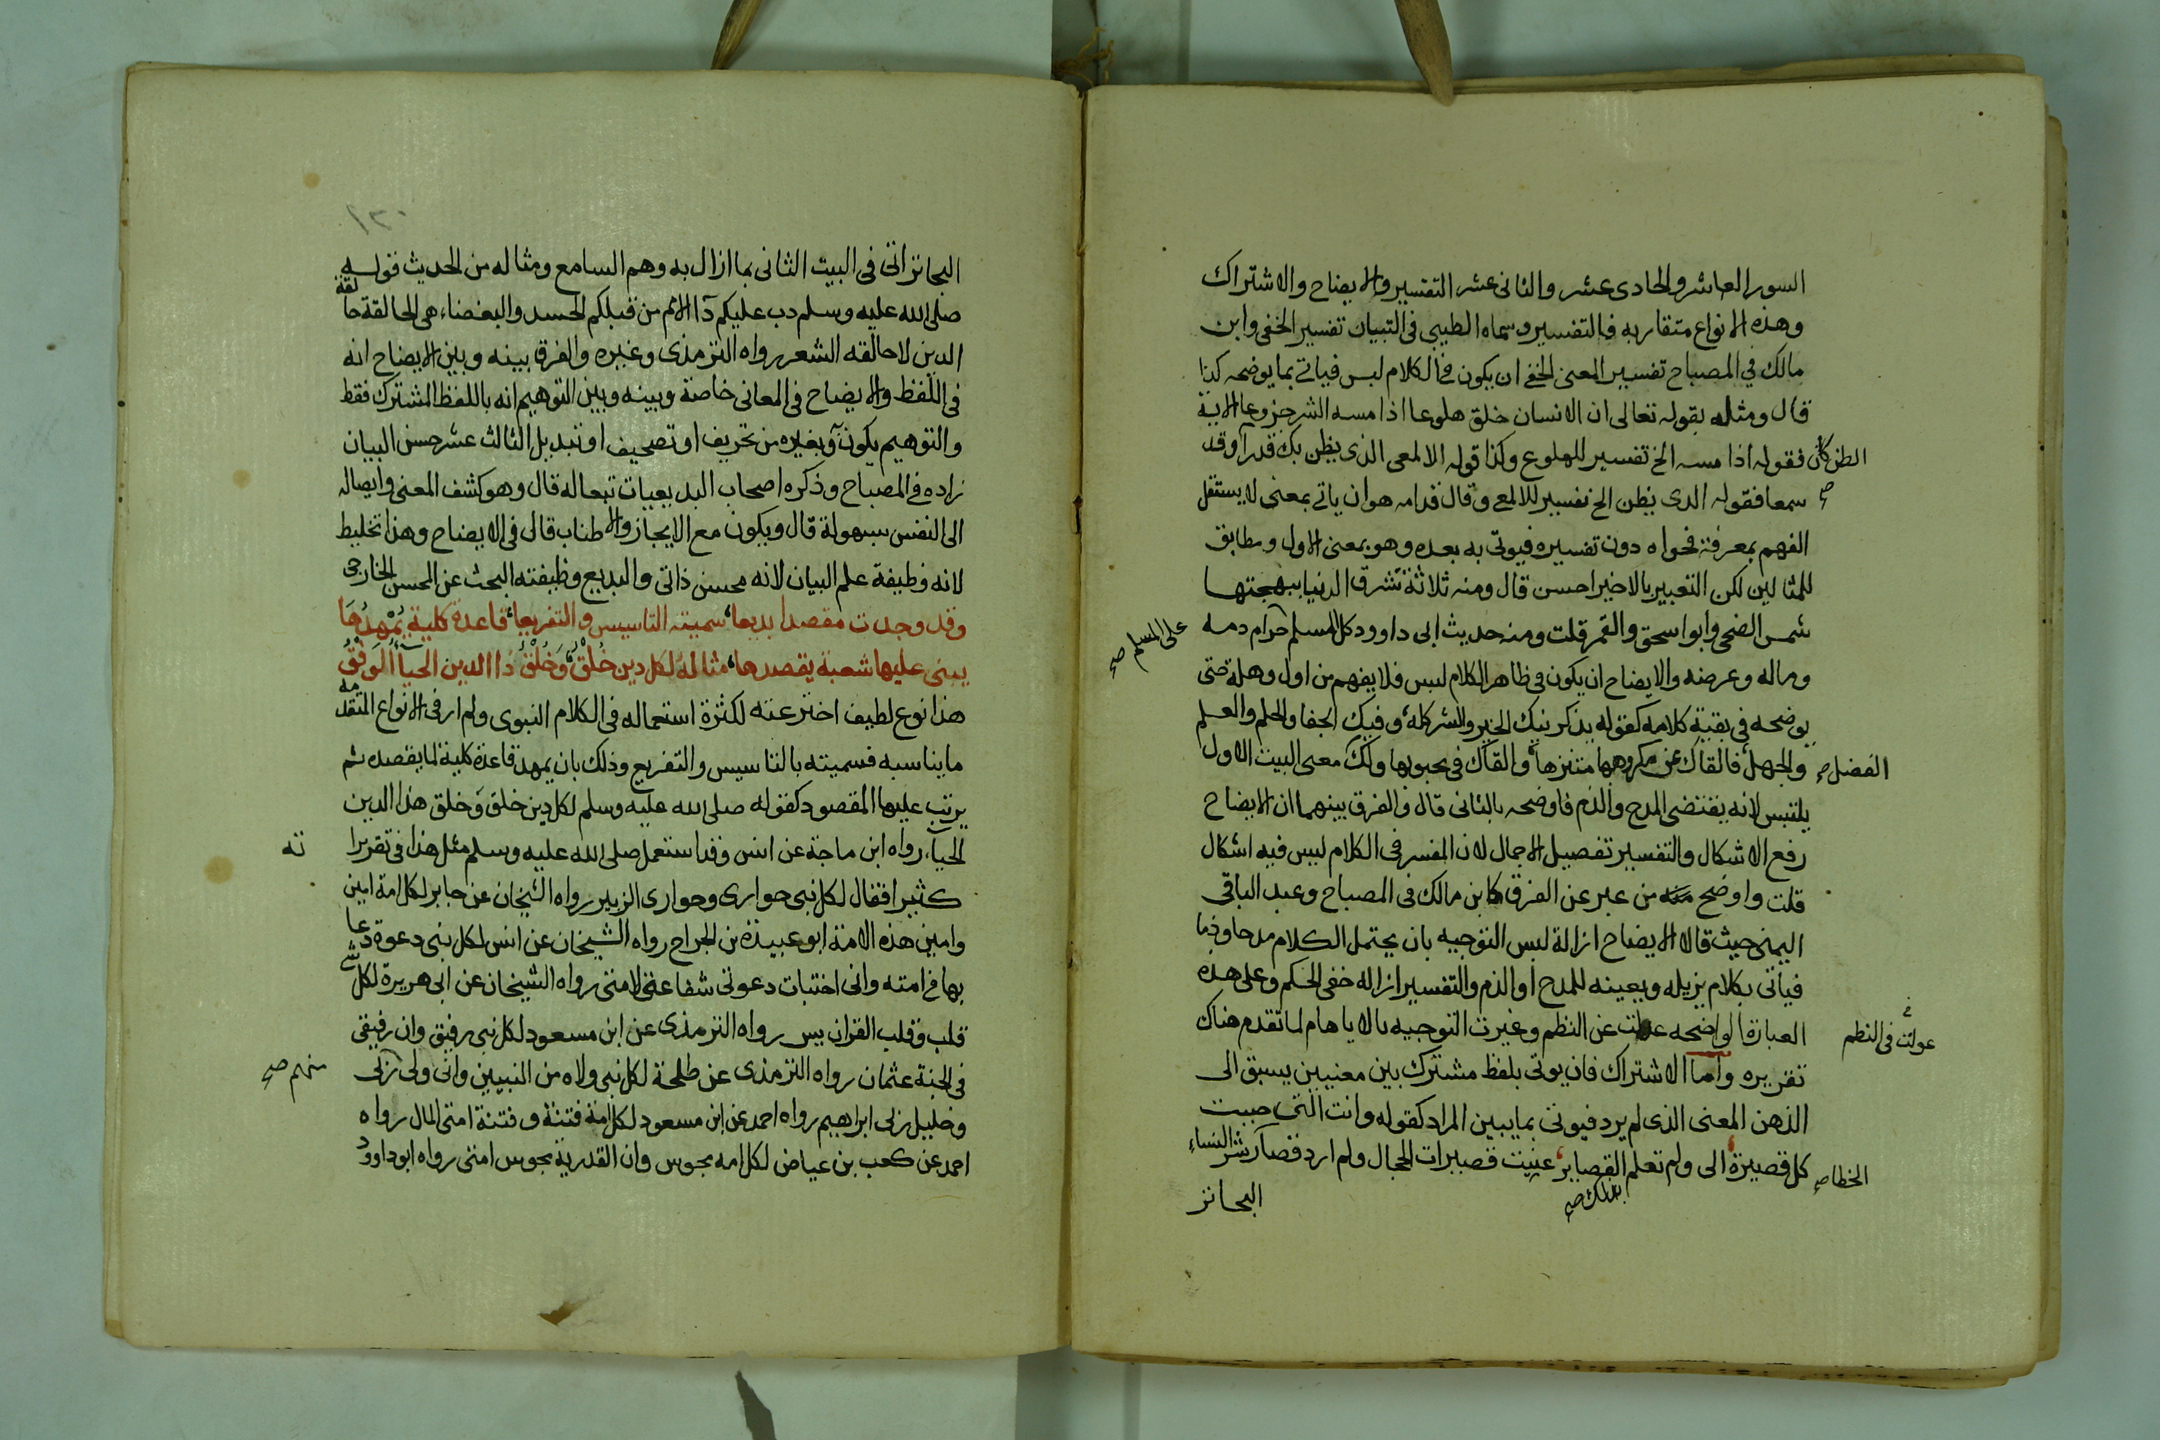 السور العاشر والحادى عشر والثانى عشر التفسير والايضاح والاشتراك
وهذه الانواع متقاربه فالتفسير وسماه الطيبى فى التبيان تفسير الخفى وابن
مالك فى المصباح تفسير المعنى الخفى ان يكون فى الكلام لبس فياتى بما يوضحه كذا
قال ومثله بقوله تعالى ان الانسان خلق هلوعا اذا مسه الشر جزوعا الاية
فقوله اذا مسه الخ تفسير للهلوع وكذا قوله الالمعى الذى يظن بك قدرآ وقد
الظن كان
سمعا فقوله الذى يظن الخ تفسير للالمعى وقال قدامه هو ان ياتى بمعنى لا يستقل
صح
الفهم بمعرفة فحواه دون تفسيره فيوتى به بعده وهو بمعنى الاول ومطابق
للمثالين لكن التعبير بالاخير احسن قال ومنه ثلاثة تشرق الدنيا ببهجتها
شمس الضحى وابو اسحق والقمر قلت ومنه حديث ابى داوود كل المسلم حرام دمه
على المسلم صح
وماله وعرضه والايضاح ان يكون فى ظاهر الكلام لبس فلا يفهم من اول وهلة حتى
يوضحه فى بقية كلامه كقوله يذكرنيك الخير والشر كله وفيك الجفا والحلم والعلم
والجهل فالقاك عن مكروهها متنزها والقاك فى محبوبها ولك معنى البيت الاول
الفضل صح
يلتبس لانه يقتضى المدح والذم فاوضحه بالثانى قال والفرق بينهما ان الايضاح
رفع الاشكال والتفسير تفصيل الاجمال لان المفسر فى الكلام ليس فيه اشكال
قلت واوضح منه من عبر عن الفرق كابن مالك فى المصباح وعبد الباقى
اليمنى حيث قالا الايضاح ازالة لبس التوجيه بان يحتمل الكلام مدحا وذما
فيأتى بكلام يزيله ويعينه للمدح او الذم والتفسير ازاله خفى الحكم وعلى هذه
العبارة الواضحه عولت عن النظم وغيرت التوجيه بالايهام لما تقدم هناك
عولت فى النظم
تقريره واما الاشتراك فان يوتى بلفظ مشترك بين معنيين يسبق الى
الذهن المعنى الذى لم يرد فيوتى بما يبين المراد كقوله وانت التى حببت
كل قصيرة الى ولم تعلم القصاير عنيت قصيرات الحجال ولم ارد قصار شر النساء
الخطا صح
بذلك صح
البحاتر
١٣٠
البحاتر اتى فى البيت الثانى بما ازال به وهم السامع ومثاله من الحديث قوله
صلى الله عليه وسلم دب عليكم دآ الامم من قبلكم الحسد والبغضاء هى الحالقة حالقة
الدين لا حالقه الشعر رواه الترمذى وغيره والفرق بينه وبين الايضاح انه
فى اللفظ والايضاح فى المعانى خاصة وبينه وبين التوهيم انه باللفظ المشترك فقط
والتوهيم يكون به وبغيره من تحريف او تصحيف او تبديل الثالث عشر حسن البيان
زاده فى المصباح وذكره اصحاب البديعيات تبعا له قال وهو كشف المعنى وايصاله
الى النفس بسهولة قال ويكون مع الايجاز والاطناب قال فى الايضاح وهذا تخليط
لانه وظيفة علم البيان لانه محسن ذاتى والبديع وظيفته البحث عن المحسن الخارجى
وقد وجدت مقصدا بديعا سميته التاسيس والتفريعا قاعدة كلية يمهدها
يبنى عليها شعبة يقصدها مثاله لكل دين خلق وخلق ذا الدين الحيآ الوفق
هذا نوع لطيف اخترعته لكثرة استعماله فى الكلام النبوى ولم ار فى الانواع المتقدمه
ما يناسبه فسميته بالتاسيس والتفريع وذلك بان يمهد قاعدة كلية لما يقصده ثم
يرتب عليها المقصود كقوله صلى الله عليه وسلم لكل دين خلق وخلق هذا الدين
الحيآء رواه ابن ماجة عن انس وقد استعمل صلى الله عليه وسلم مثل هذا فى تقريرا
ته
كثيرا فقال لكل نبى حوارى وحوارى الزبير رواه الشيخان عن جابر لكل امة امين
وامين هذه الامة ابو عبيدة بن الجراح رواه الشيخان عن انس لكل نبى دعوة دعا
بها فى امته وانى اختبات دعوتى شفاعة لامتى رواه الشيخان عن ابى هريرة لكل شئ
قلب وقلب القران يس رواه الترمذى عن ابن مسعود لكل نبى رفيق وان رفيقى
فى الجنة عثمان رواه الترمذى عن طلحة لكل نبى ولاه من النبيين وانى ولى زلى
منهم صح
وخليل ربى ابراهيم رواه احمد عن ابن مسعود لكل امة فتنة وفتنة امتى المال رواه
احمد عن كعب بن عياض لكل امه مجوس وان القدرية مجوس امتى رواه ابو داوود